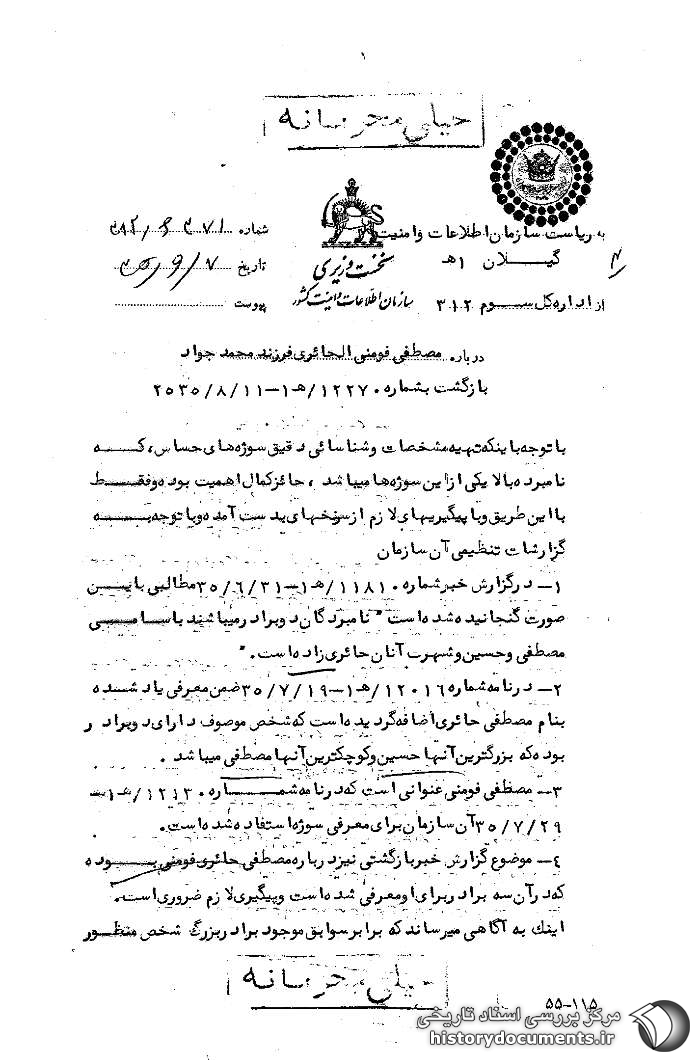 ۱
خیلی محرمانه
به ریاست سازمان اطلاعات و امنیت
گیلان ۱هـ
از اداره کل سوم ۳۱۲
نخست وزیری
سازمان اطلاعات و امنیت کشور
شماره
تاریخ
پیوست
درباره مصطفی فومنی الحائری فرزند محمد جواد
بازگشت بشماره ۱۲۲۷۰/هـ۱-۲۵۳۵/۸/۱۱
با توجه باینکه تهیه مشخصات و شناسائی دقیق سوژه‌های حساس، که
نامبرده بالا یکی از این سوژه‌ها میباشد، حائز کمال اهمیت بوده و فقط
با این طریق و با پیگیریهای لازم از سرنخهای بدست آمده و با توجه به
گزارشات تنظیمی آن سازمان
۱- در گزارش خبر شماره ۱۱۸۱۰/هـ۱-۳۵/۶/۳۱ مطالبی باین
صورت گنجانیده شده است "نامبردگان دو برادر میباشند باسامی
مصطفی و حسین و شهرت آنان حائری زاده است."
۲- در نامه شماره ۱۲۰۱۶/هـ۱-۳۵/۷/۱۹ ضمن معرفی یاد شده
بنام مصطفی حائری اضافه گردیده است که شخص موصوف دارای دو برادر
بوده که بزرگترین آنها حسین و کوچکترین آنها مصطفی میباشد.
۳- مصطفی فومنی عنوانی است که در نامه شماره ۱۲۱۳۰/هـ۱-
۳۵/۷/۲۹ آن سازمان برای معرفی سوژه استفاده شده است.
۴- موضوع گزارش خبر بازگشتی نیز درباره مصطفی حائری فومنی بوده
که در آن سه برادر برای او معرفی شده است و پیگیری لازم ضروری است.
اینک به آگاهی میرساند که برابر سوابق موجود برادر بزرگ شخص منظور
خیلی محرمانه
۵۵-۱۱۵
مرکز بررسی اسناد تاریخی
historydocuments.ir